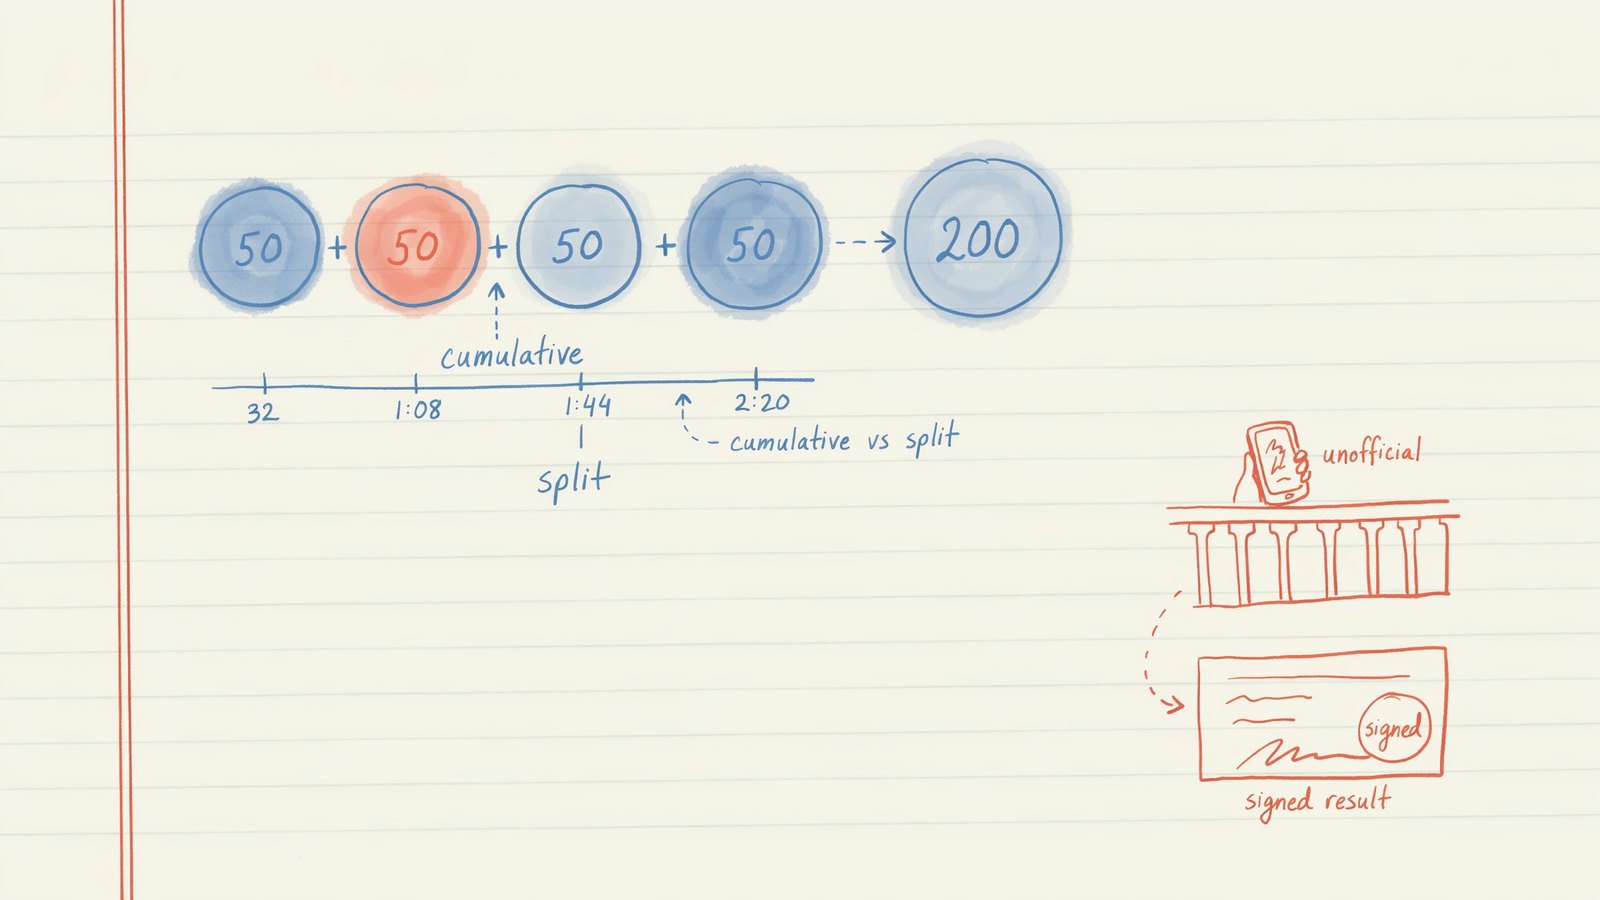 50 + 50 + 50 + 50 200
cumulative
32 1:08 1:44 2:20
cumulative vs split
split
unofficial
signed
signed result